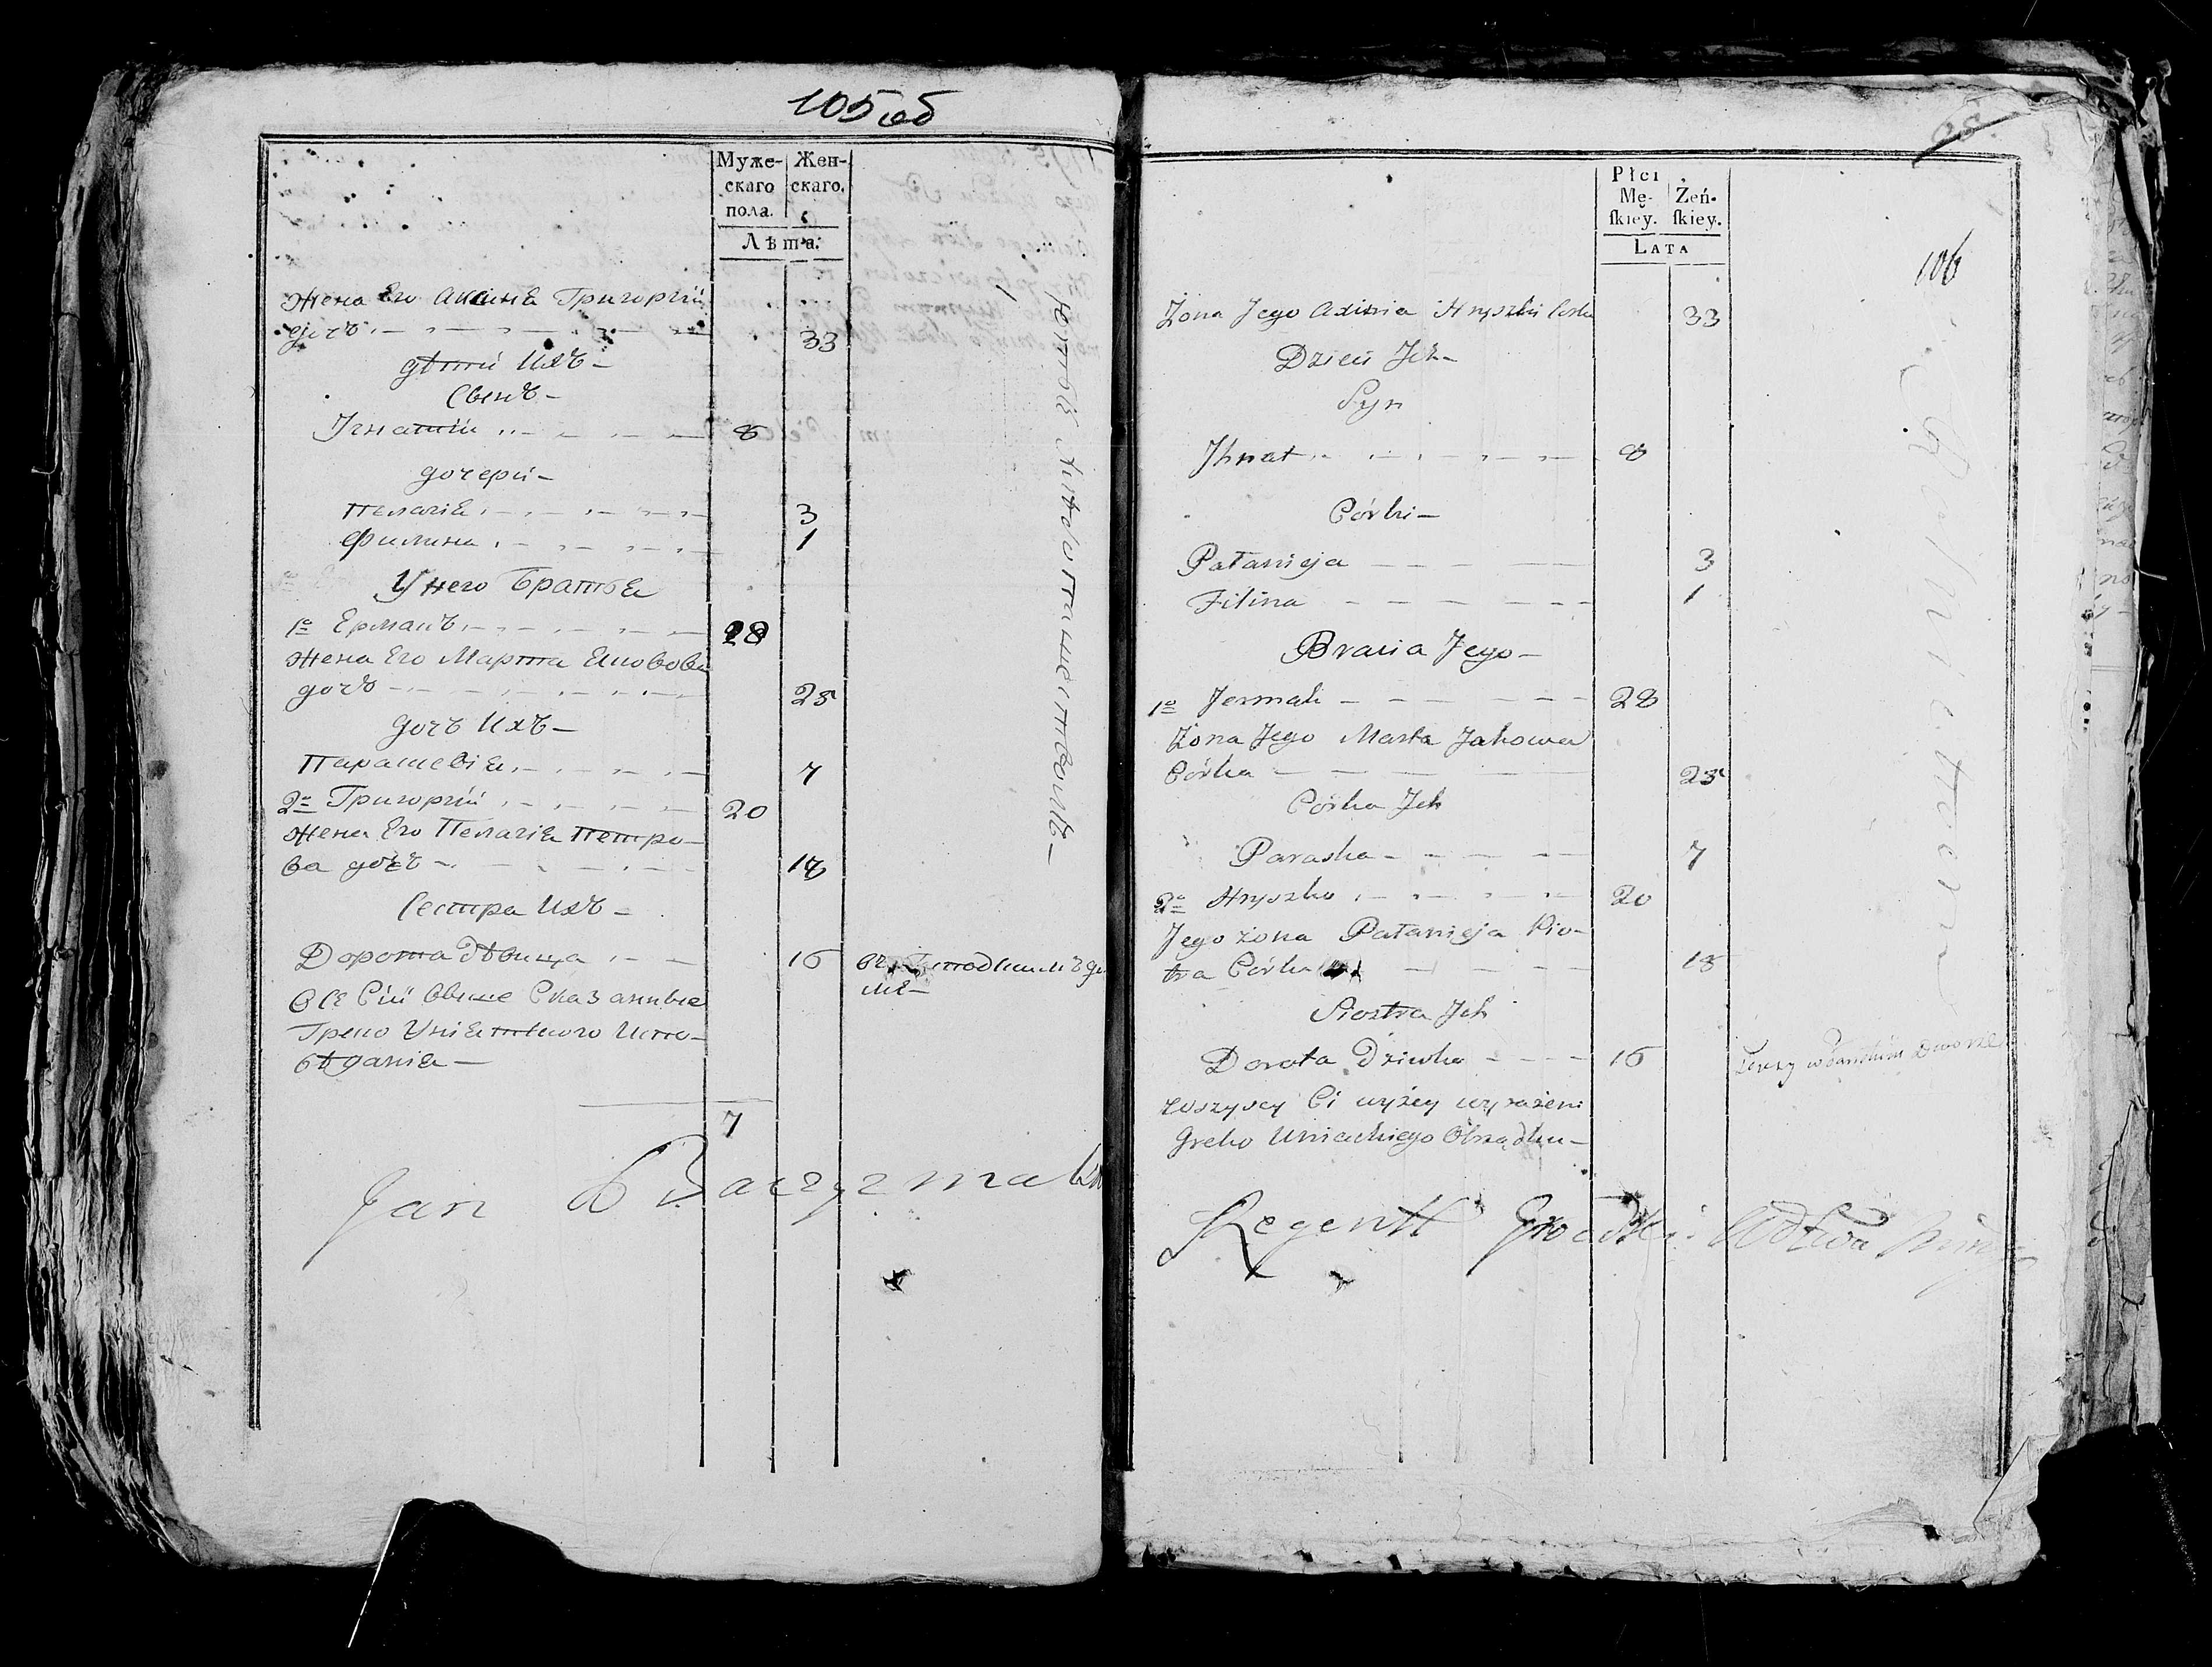 105 об
Муже-
скаго
пола.
Жен-
скаго.
Лѣта.
Жена Его Аксинѣ Григоргій
дочъ
33
дѣтй Ихъ
Сынъ
Игнатій
8
дочери
Пелагіѣ
3
Филина
1
У него Братьѣ
1º Ермакъ
28
Жена Его Марта Якововa
дочъ
25
дочъ Ихъ
Парасцевіѣ
7
2º Григоргій
20
Жена Его Пелагіѣ Петро-
ва дочъ
18
Сестра Ихъ
Дорота дѣвица
16
Всѣ Сіи выше Сказанные
Греко Уніѣтского Испо-
вѣданіѣ
7
Jan
Płci
Mę-
ſkiey.
Żeń-
ſkiey.
Lata
106
Żona Jego Axinia Hryszki Corka
33
Dzieci Jch
Syn
Jhnat
8
Córki
Pałanieja
3
Filina
1
Bracia Jego
1º Jermak
28
Żona Jego Marta Jakowa
Córka
25
Córka Jch
Paraska
7
2º Hryszko
20
Jego żona Pałanieja Pio-
tra Córka
18
Siostra Jch
Dorota Dziewka
16
Teraz w Pańskim Dworze
Wszyscy Ci wyżey wyrażeni
Greko Uniackiego Obrządku
Regentt Grodzki